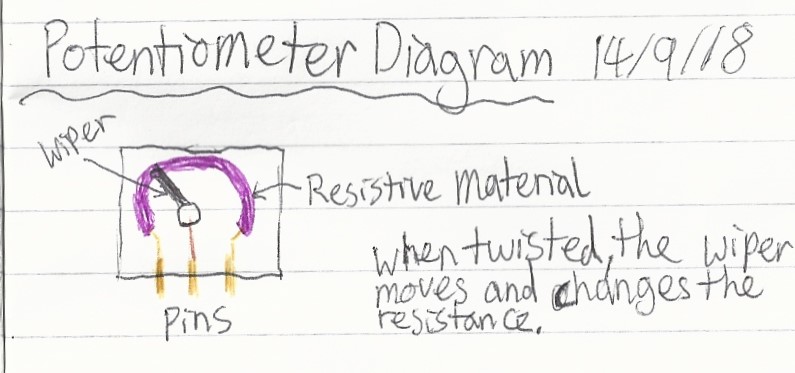 Potentiometer Diagram 14/9/18
wiper
Resistive Material
when twisted, the wiper
moves and changes the
resistance.
pins